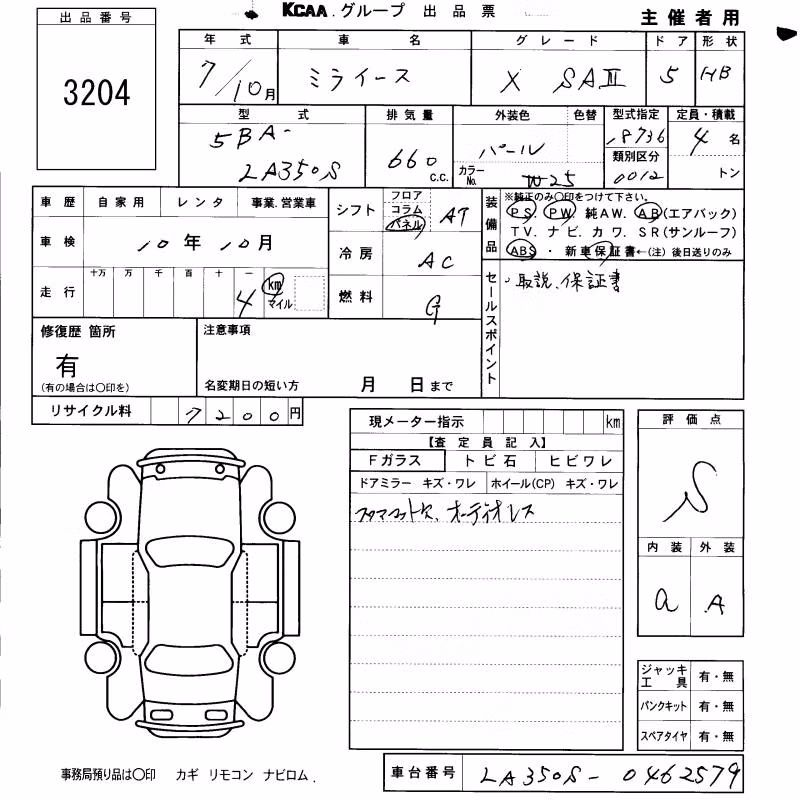 KCAA グループ 出品票
主催者用
出品番号
3204
年式 車名 グレード ドア 形状
7/10月 ミライース X SAⅢ 5 HB
型式 排気量 外装色 色替 型式指定 定員・積載
5BA-
LA350S
660 c.c.
パール
カラーNo. W25
18736
類別区分
0012
4 名
トン
車歴 自家用 レンタ 事業.営業車
車検 10年10月
走行 十万 万 千 百 十 一
4 km マイル
シフト フロア コラム パネル AT
冷房 AC
燃料 G
装備品
※純正のみ〇印をつけて下さい。
PS PW 純AW. AB(エアバック)
TV. ナビ. カワ. SR(サンルーフ)
ABS ・ 新車保証書←(注)後日送りのみ
セールスポイント
・取説、保証書
修復歴 箇所
有
(有の場合は〇印を)
注意事項
名変期日の短い方 月 日まで
リサイクル料 7200円
現メーター指示 km
【査定員記入】
Fガラス トビ石 ヒビワレ
ドアミラー キズ・ワレ ホイール(CP) キズ・ワレ
フロアマット欠、オーディオレス
評価点
S
内装 外装
a A
ジャッキ工具 有・無
パンクキット 有・無
スペアタイヤ 有・無
事務局預り品は〇印 カギ リモコン ナビロム.
車台番号 LA350S-0462579